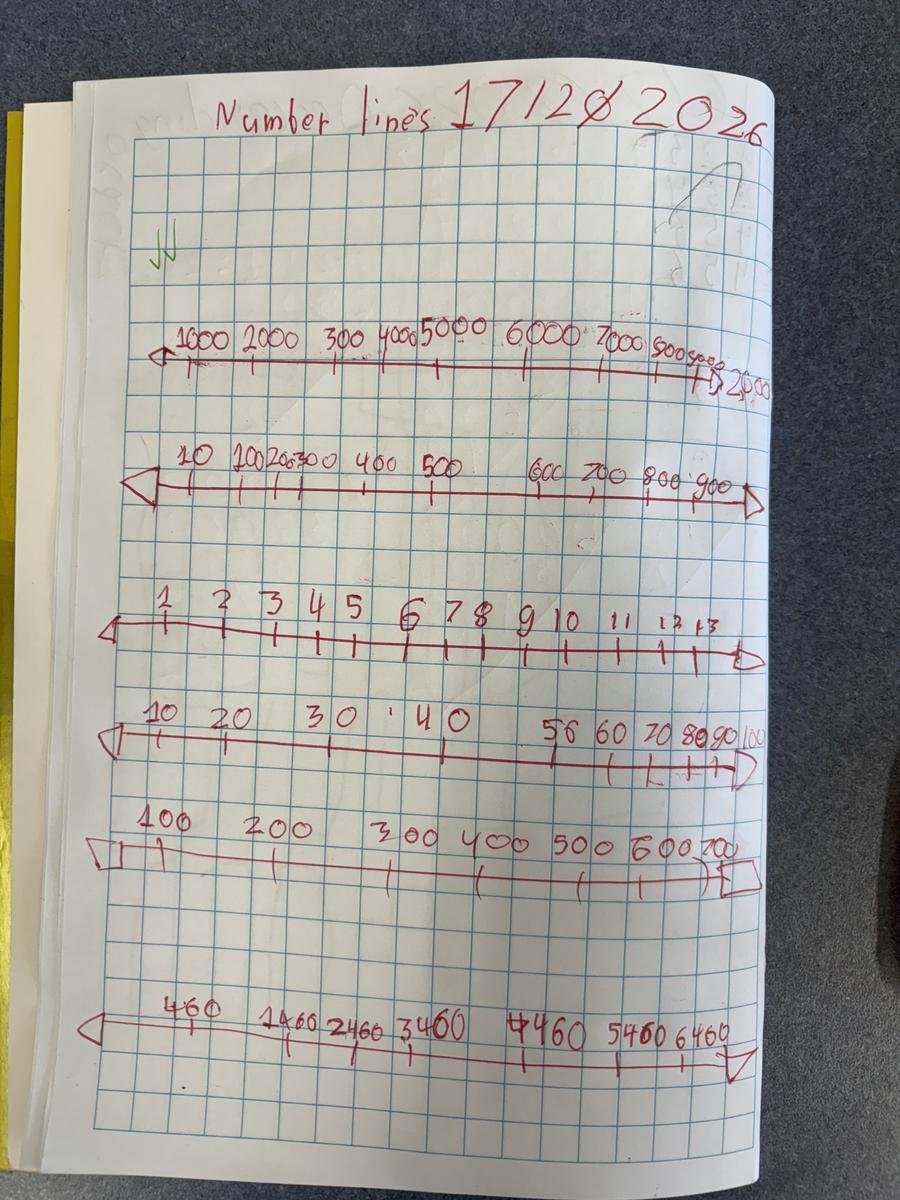 Number lines 17/20 2026
1000 2000 300 4000 5000 6000 7000
10 100 200 300 400 500 600 700 800 900
1 2 3 4 5 6 7 8 9 10 11 12 13
10 20 30 40 56 60 70 80 90 100
100 200 300 400 500 600 700
460 1460 2460 3460 4460 5460 6460